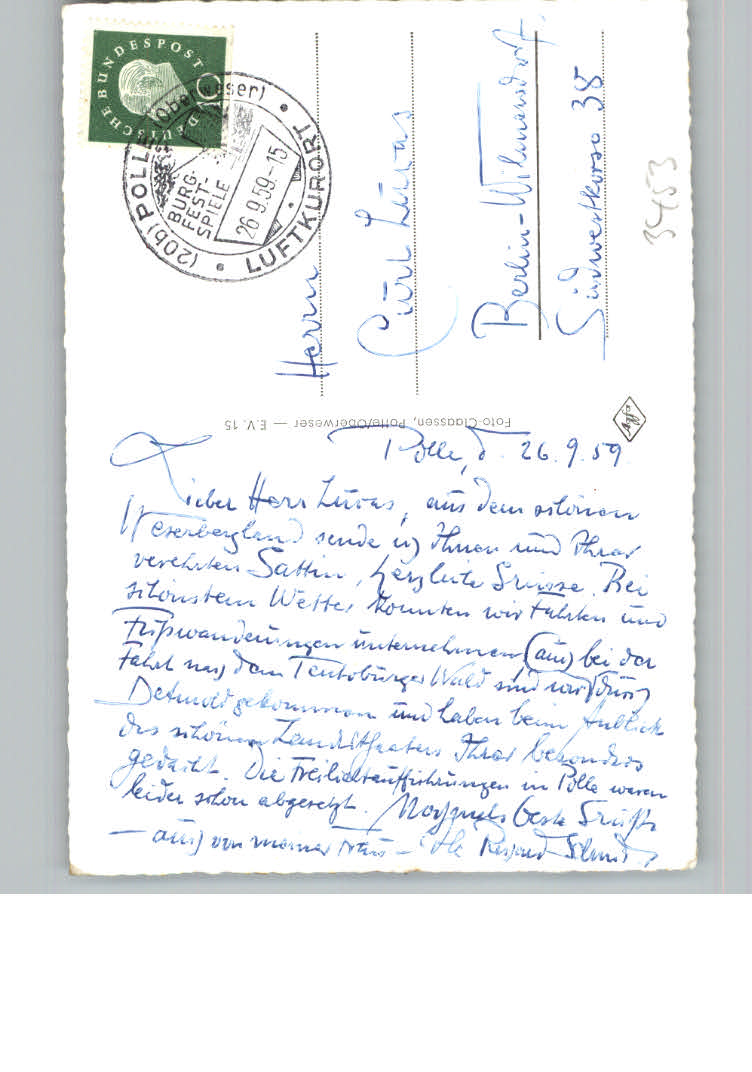 DEUTSCHE BUNDESPOST
10
(20b) POLLE (Oberweser)
BURG-
FEST-
SPIELE
26.9.59.-15
LUFTKURORT
Herrn
Curt Lucas
Berlin-Wilmersdorf,
Südwestkorso 38
3453
Foto-Claassen, Polle/Oberweser — E.V. 15
Agfa
Polle, d. 26.9.59.
Lieber Herr Lucas, aus dem schönen
Weserbergland sende ich Ihnen und Ihrer
verehrten Gattin, herzliche Grüsse. Bei
schönstem Wetter konnten wir Fahrten und
Fußwanderungen unternehmen (auch bei der
Fahrt nach dem Teutoburger Wald sind wir durch
Detmold gekommen und haben beim Anblick
des schönen Landestheaters Ihrer besonders
gedacht. Die Freilichtaufführungen in Polle waren
leider schon abgesetzt. Nochmals beste Grüße
— auch von meiner Frau — Ihr Schmidt